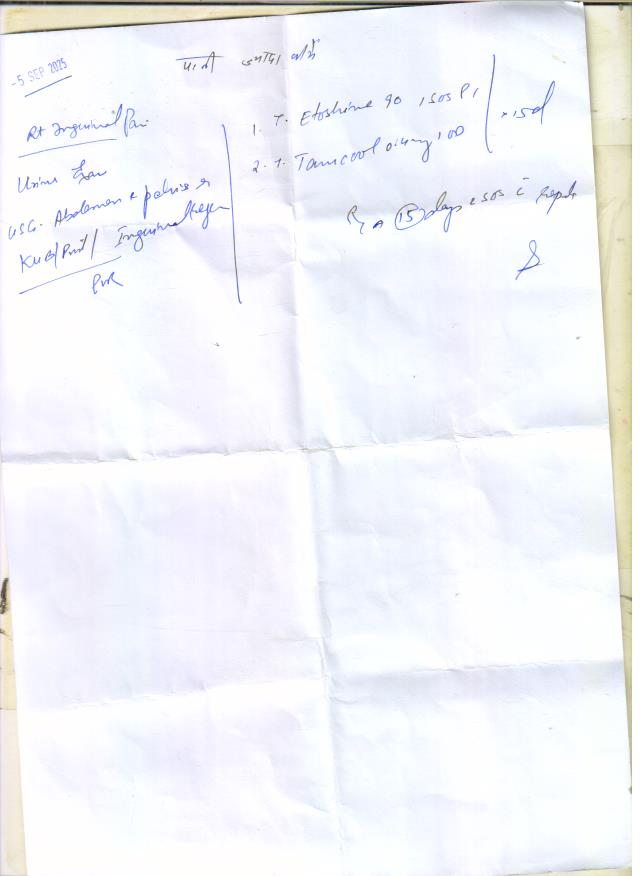 -5 SEP 2025
पानी ज्यादा पीयें
Rt Inguinal Pain
Urine Exam
USG. Abdomen & pelvis &
KUB/Prost/Inguinal region
PVR
1. T. Etoshine 90 1 sos P,
2. T. Tamcool 0.4mg 1 OD
x 15d
R A 15 days & sos c reports